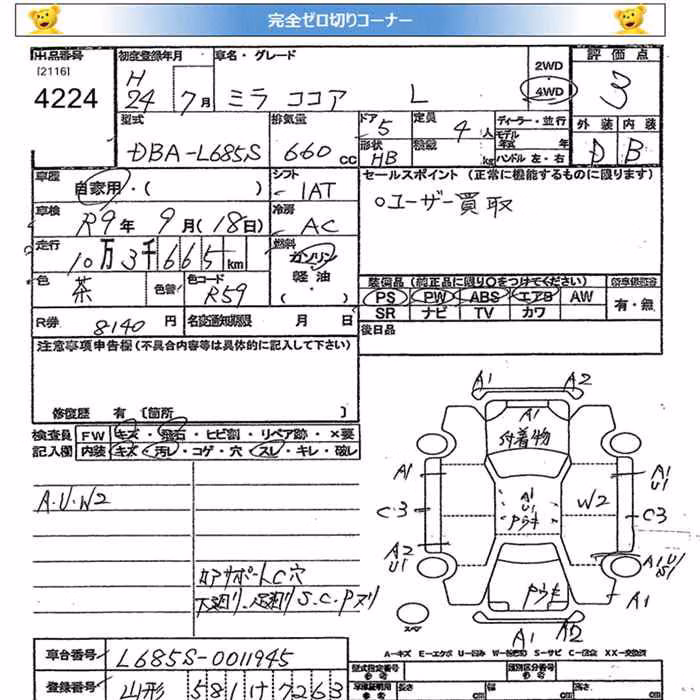 完全ゼロ切りコーナー
出品番号 初度登録年月 車名・グレード 2WD 評価点
[2116] H
4224 24 7月 ミラ ココア L 4WD 3
型式 排気量 ドア 5 定員 4人 ディーラー・並行 外装 内装
モデル年式 年
DBA-L685S 660cc 形状 HB 積載 kg ハンドル 左・右 D B
車歴 自家用・( ) シフト IAT セールスポイント (正常に機能するものに限ります)
車検 R9年 9月(18日) 冷房 AC ○ユーザー買取
走行 10万3千665km 燃料 ガソリン
軽油
・( )
色 茶 色替 色コード R59 装備品 (純正品に限り○をつけてください)
PS PW ABS エアB AW 有・無
R券 8140円 名変通知期限 月 日 SR ナビ TV カワ
注意事項申告欄(不具合内容等は具体的に記入して下さい) 後日品
修復歴 有 [箇所 ]
検査員 FW キズ・飛石・ヒビ割・リペア跡・×要
記入欄 内装 キズ・汚レ・コゲ・穴・スレ・キレ・破レ
A1 A2
A1
付着物
A.U.W2
A1 A1
U1
A1
U1
W2
C3 C3
A2
U1
コアサポートC穴
下廻り、足廻りS.C.Pヌリ
A1
スペ
A1 A2
A-キズ E-エクボ U-凹み W-補修跡 S-サビ C-腐食 XX-交換済
車台番号 L685S-0011945 型式指定番号 類別区分番号
登録番号 山形 581 け 7263 長さ cm 幅 cm 高さ cm